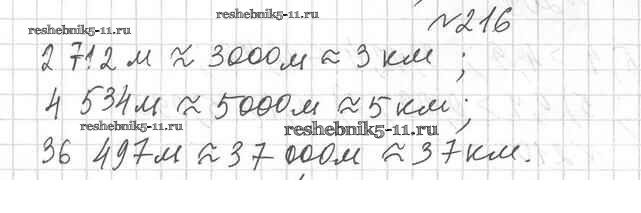 reshebnik5-11.ru
№216
reshebnik5-11.ru
2 712 м ≈ 3000м ≈ 3 км ;
4 534м ≈ 5000м ≈ 5 км ;
reshebnik5-11.ru
reshebnik5-11.ru
36 497м ≈ 37 000м ≈ 37км.